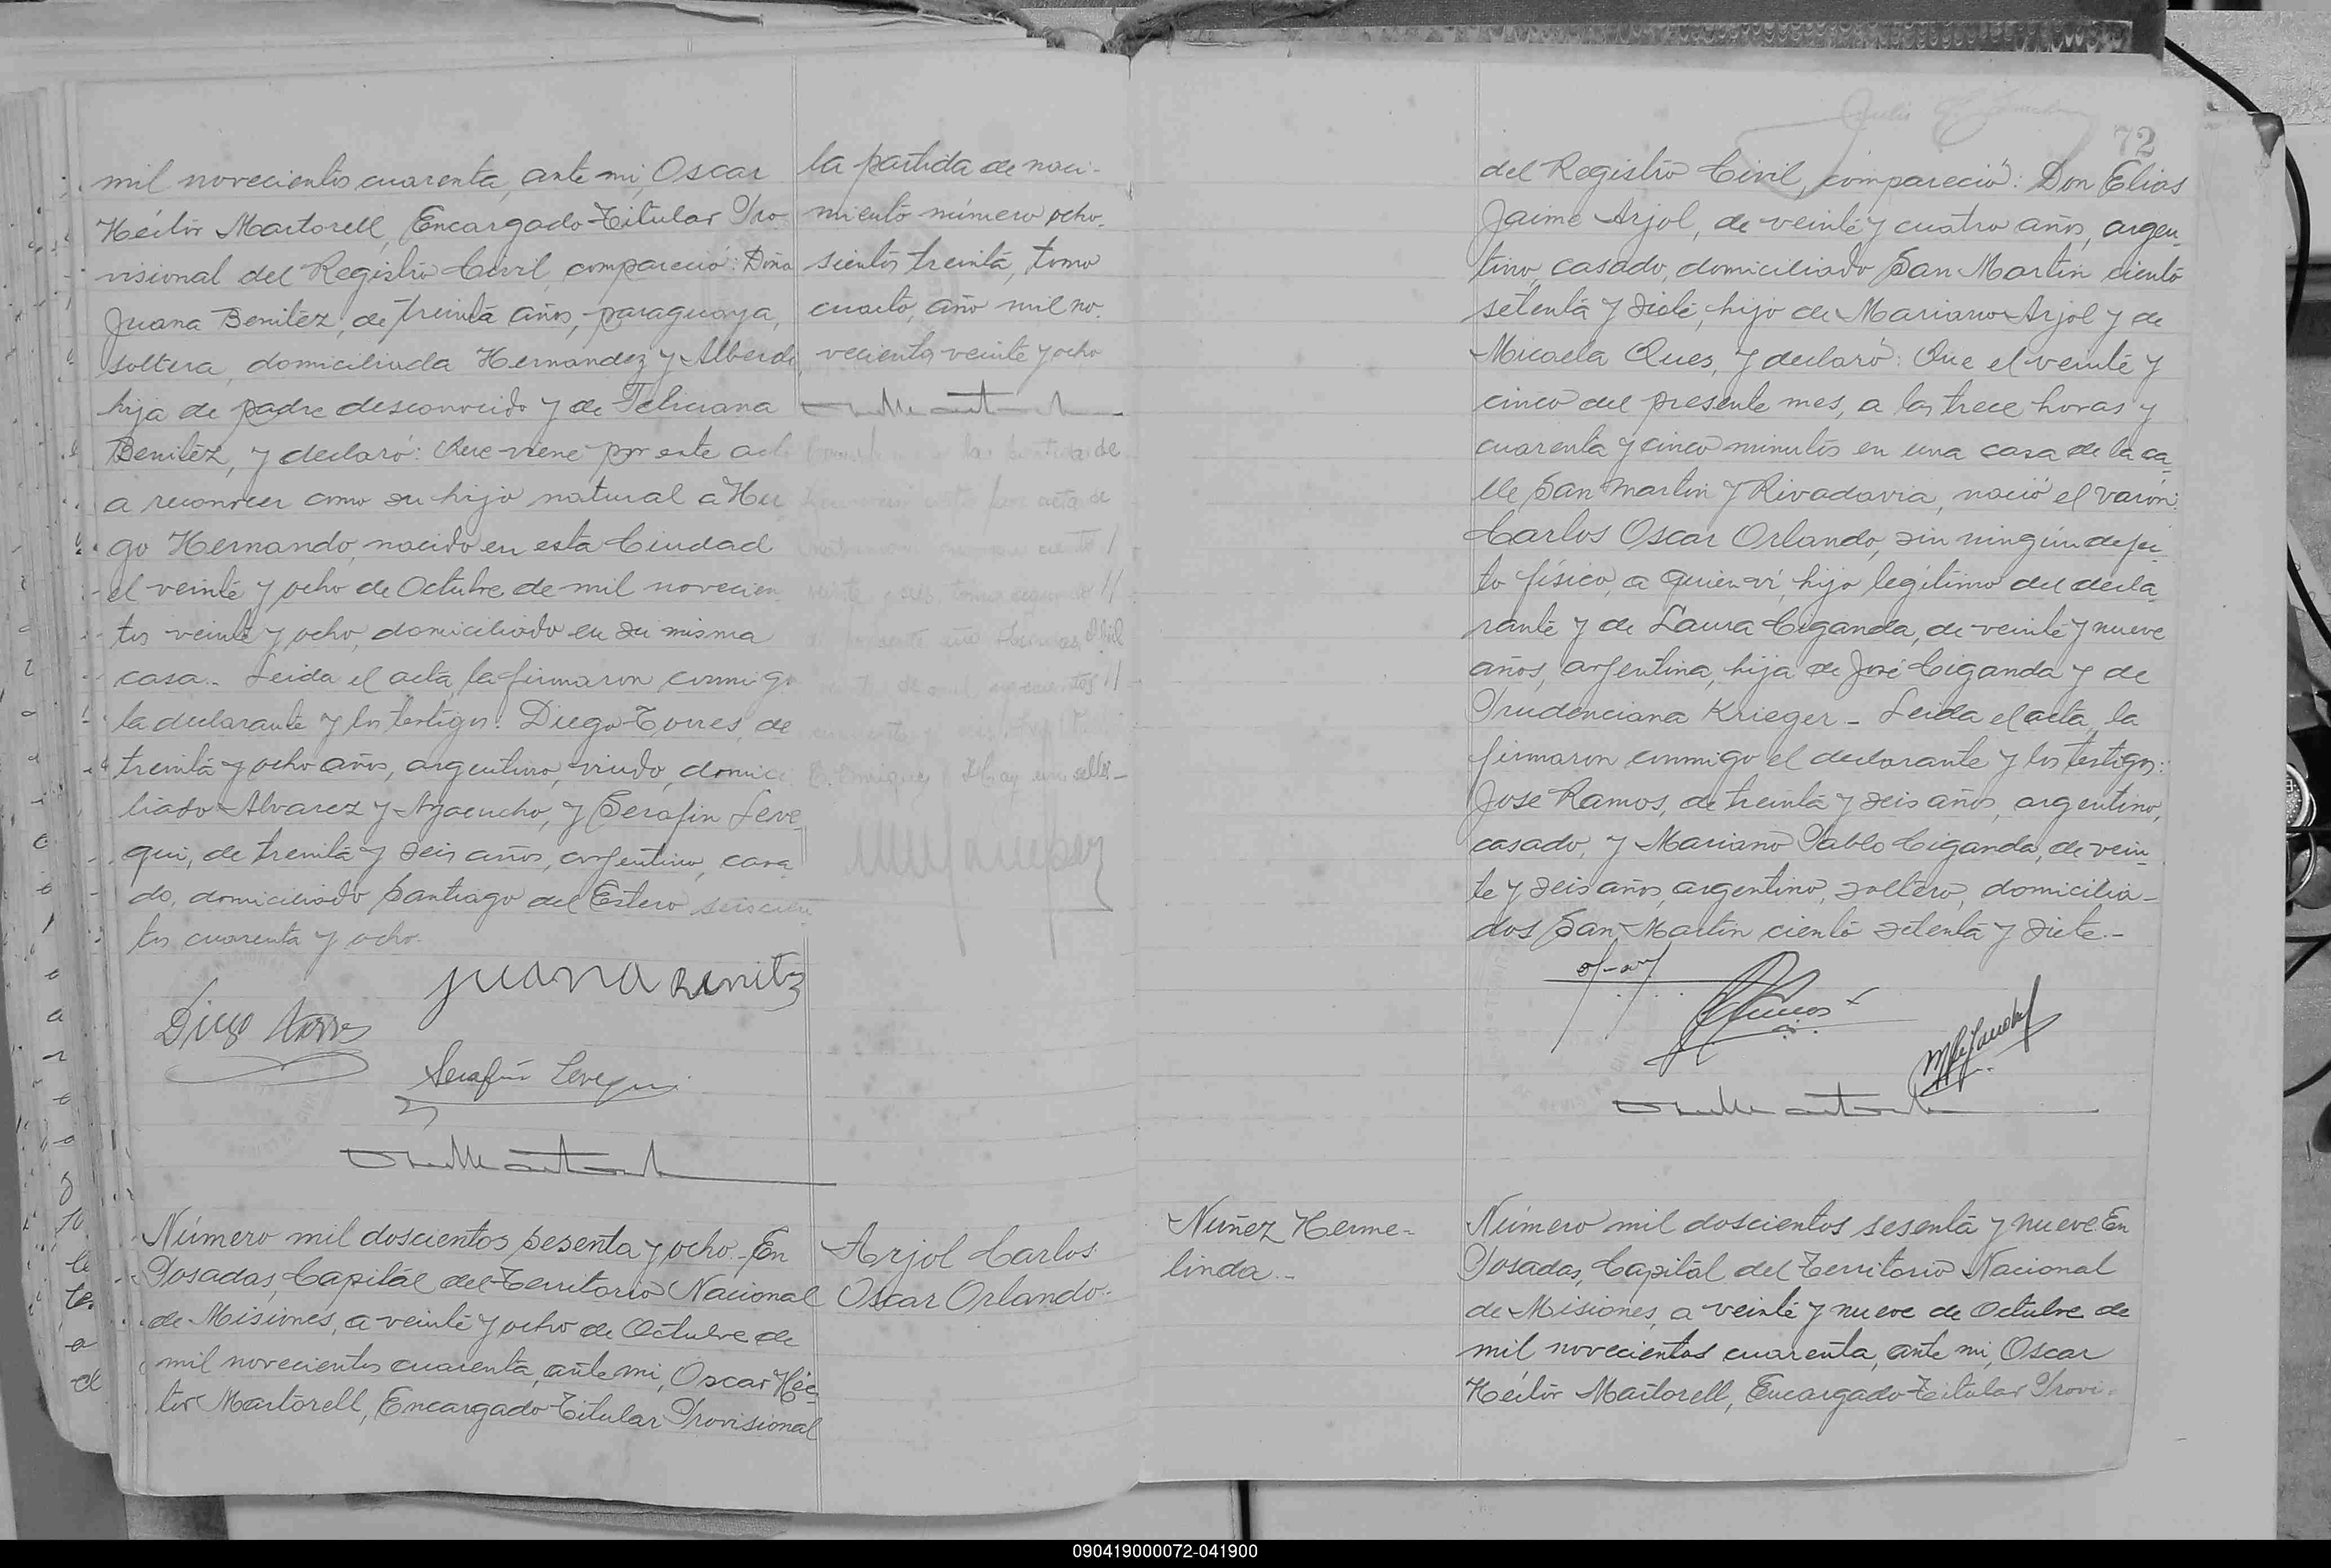 mil novecientos cuarenta, ante mi, Oscar
Héctor Martorell, Encargado Titular Pro-
visional del Registro Civil, compareció: Doña
Juana Benitez, de treinta años, paraguaya,
soltera, domiciliada Hernandez y Alberdi,
hija de padre desconocido y de Feliciana
Benitez, y declaró: Que viene por este acto
a reconocer como su hijo natural a Hu
go Hernando, nacido en esta Ciudad
el veinte y ocho de Octubre de mil novecien
tos veinte y ocho, domiciliado en su misma
casa.- Leida el acta, la firmaron conmigo
la declarante y los testigos: Diego Torres, de
treinta y ocho años, argentino, viudo, domici
liado Alvarez y Ayacucho, y Serafin Leve-
qui, de treinta y seis años, argentino, casa-
do, domiciliado Santiago del Estero seiscien
tos cuarenta y ocho.
Juana Benitz
Diego Torres
Serafín Levequi
la partida de naci-
miento número ocho-
sientos treinta, tomo
cuarto, año mil no-
vecientos veinte y ocho
la partida de
por acta de
ciento
veinte y seis, tomo segundo
Abril
de mil novecientos
Hay un sello.-
Número mil doscientos sesenta y ocho.- En
Posadas, Capital del Territorio Nacional
de Misiones, a veinte y ocho de Octubre de
mil novecientos cuarenta, ante mi, Oscar Héc-
tor Martorell, Encargado Titular Provisional
Arjol Carlos
Oscar Orlando.-
72
del Registro Civil, compareció: Don Elias
Jaime Arjol, de veinte y cuatro años, argen-
tino, casado, domiciliado San Martin ciento
setenta y siete, hijo de Mariano Arjol y de
Micaela Ques, y declaró: Que el veinte y
cinco del presente mes, a las trece horas y
cuarenta y cinco minutos en una casa de la ca-
lle San Martin y Rivadavia, nació el varón:
Carlos Oscar Orlando, sin ningún defec-
to físico, a quien ví, hijo legítimo del decla-
rante y de Laura Ciganda, de veinte y nueve
años, argentina, hija de José Ciganda y de
Prudenciana Krieger.- Leida el acta, la
firmaron conmigo el declarante y los testigos:
Jose Ramos, de treinta y seis años, argentino,
casado, y Mariano Pablo Ciganda, de vein-
te y seis años, argentino, soltero, domicilia-
dos San Martin ciento setenta y siete.-
Nuñez Herme-
linda.-
Número mil doscientos sesenta y nueve. En
Posadas, Capital del Territorio Nacional
de Misiones, a veinte y nueve de Octubre de
mil novecientos cuarenta, ante mi, Oscar
Héctor Martorell, Encargado Titular Provi-
090419000072-041900